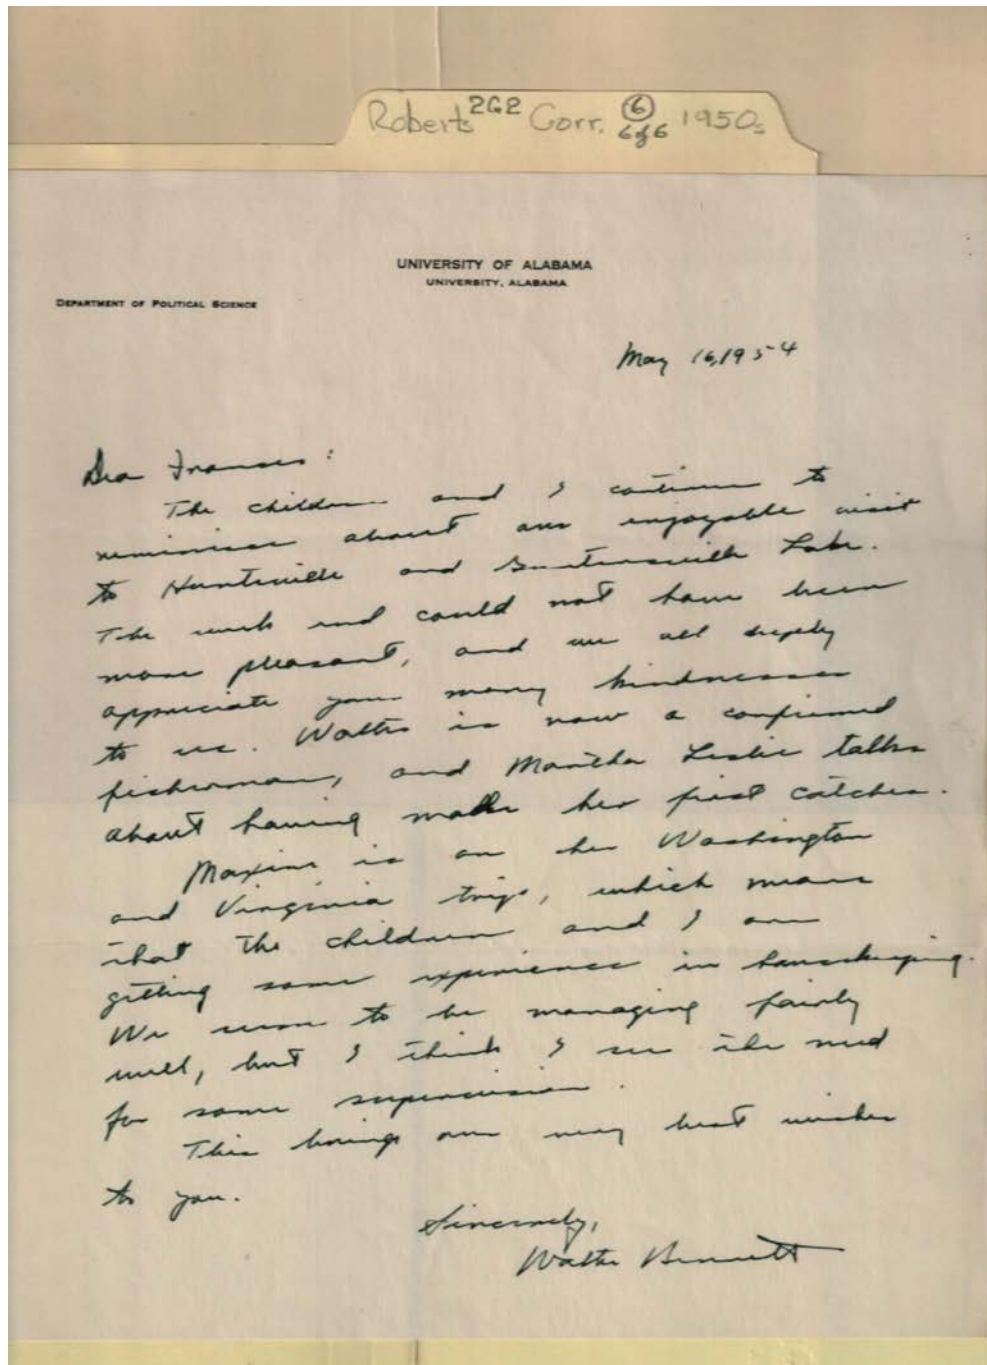 Roberts 2G2 Corr. 6 1950s
6 of 6
UNIVERSITY OF ALABAMA
UNIVERSITY, ALABAMA
DEPARTMENT OF POLITICAL SCIENCE
May 16, 1954
Dear Frances:
The children and I continue to
reminisce about our enjoyable visit
to Huntsville and Guntersville Lake.
The week end could not have been
more pleasant, and we all deeply
appreciate your many kindnesses
to us. Walter is now a confirmed
fisherman, and Martha Leslie talks
about having made her first catches.
Maxine is on her Washington
and Virginia trip, which means
that the children and I are
getting some experience in housekeeping.
We seem to be managing fairly
well, but I think I see the need
for some supervision.
This brings our very best wishes
to you.
Sincerely,
Walter Bennett